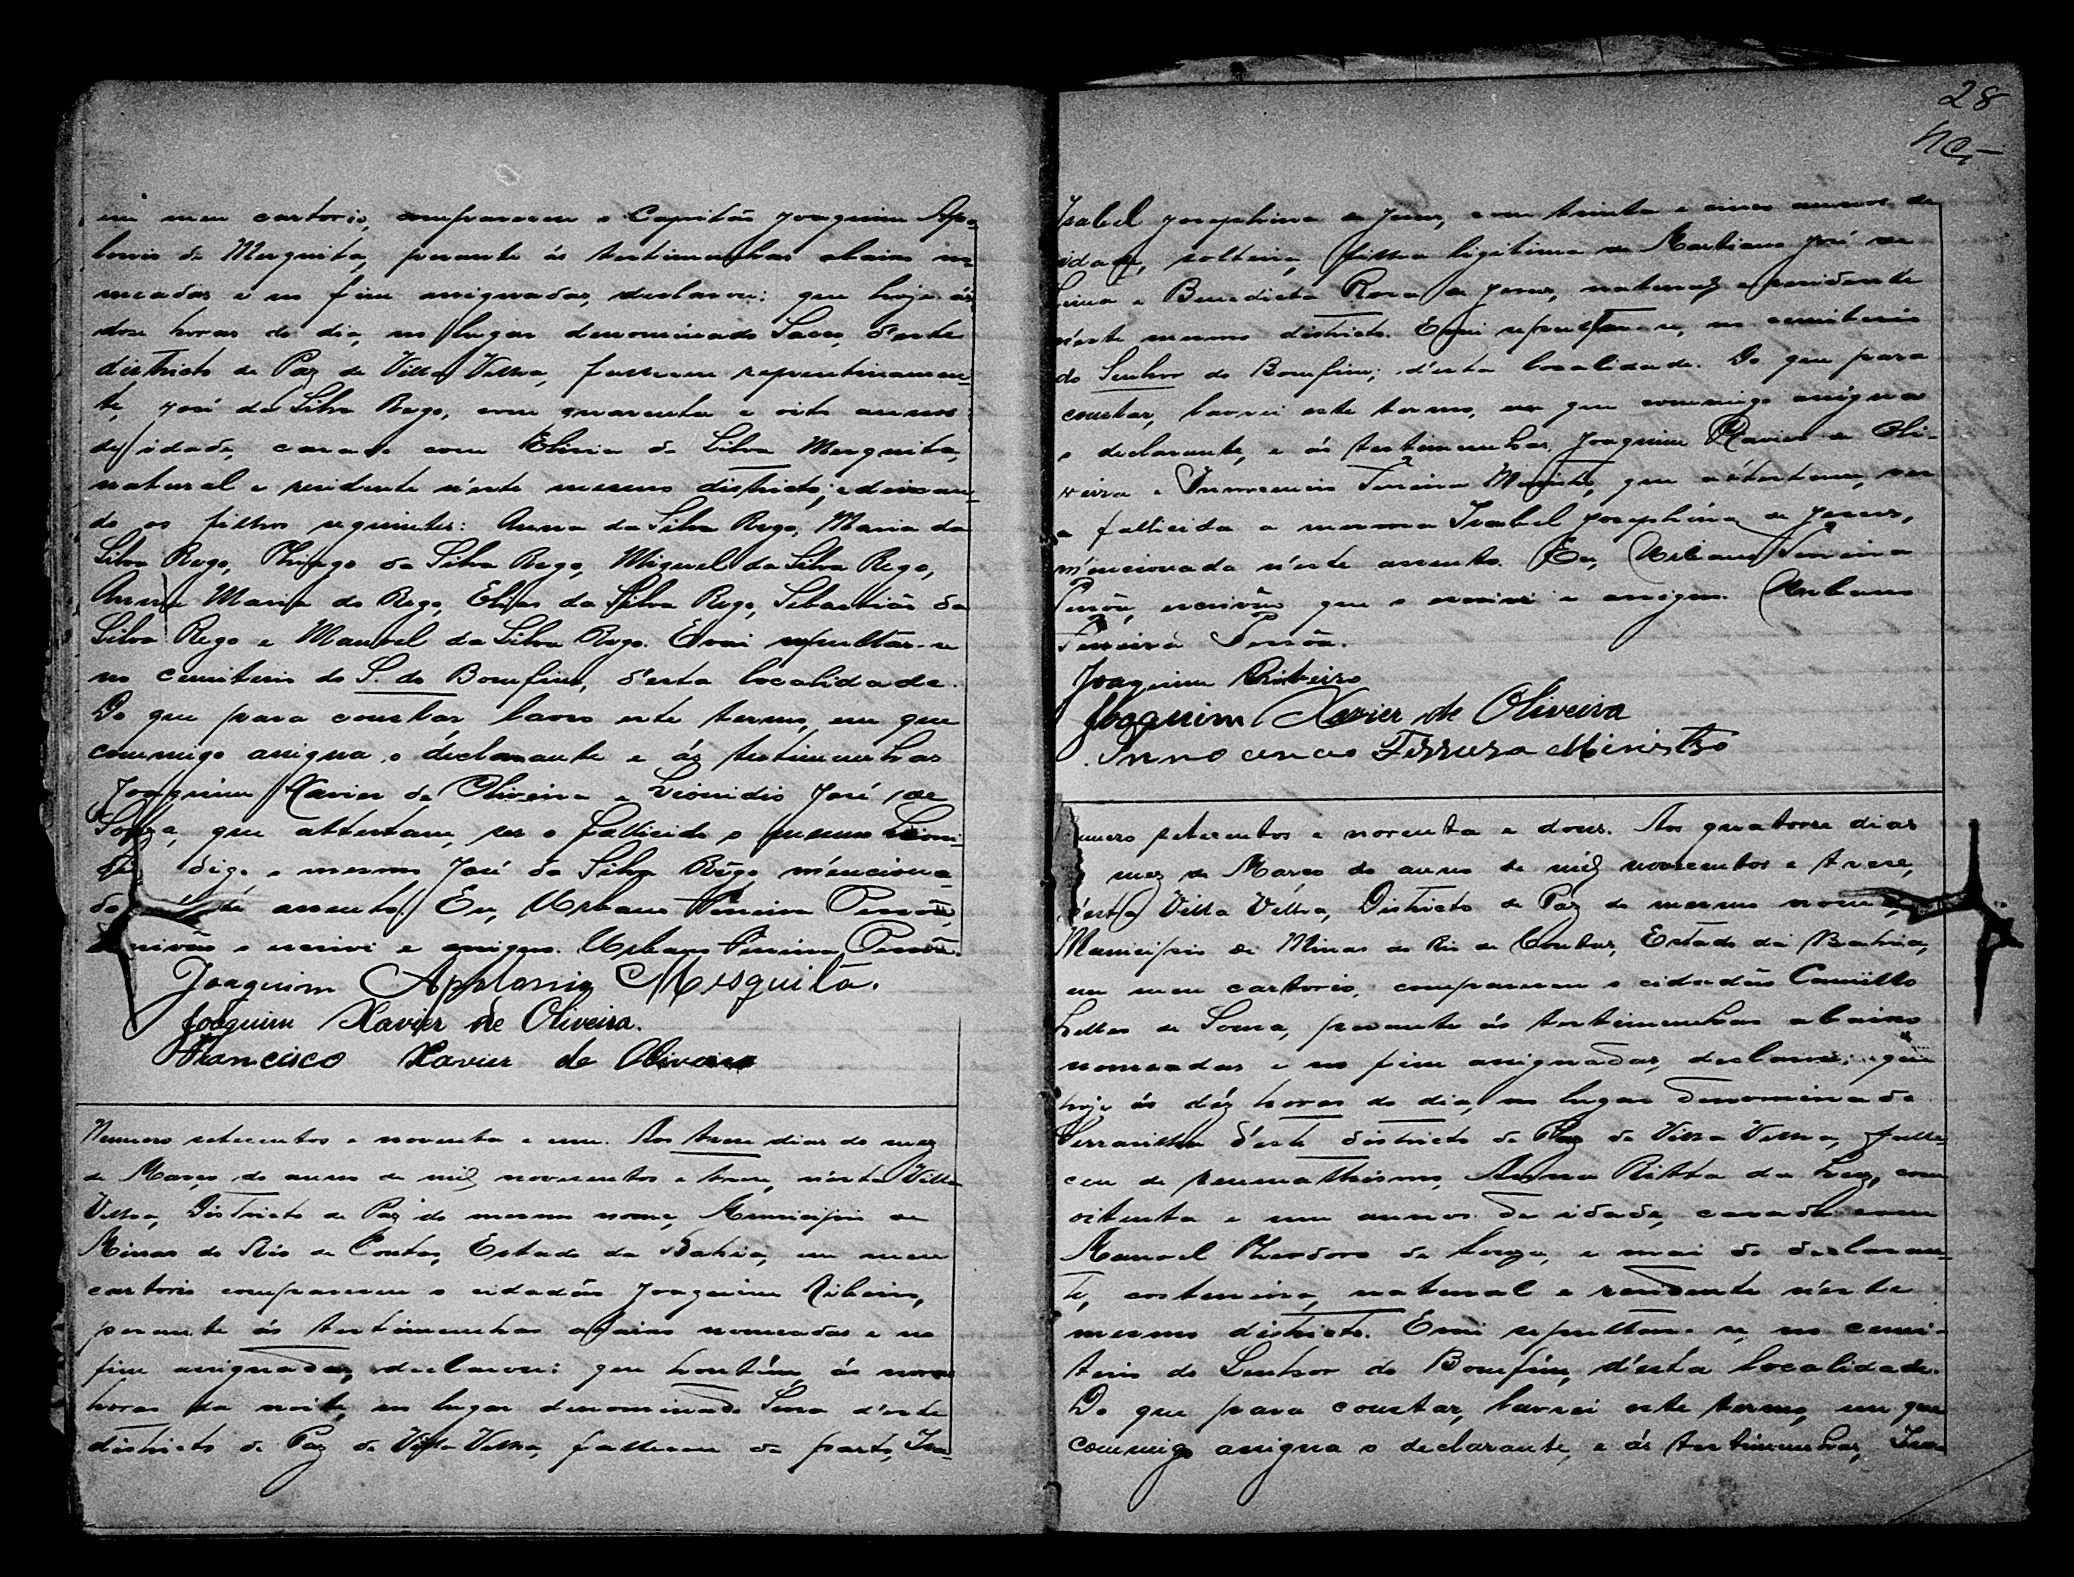 em meu cartorio, compareceu o Capitão Joaquim Apo-
lonio de Mesquita, perante ás testimunhas abaixo no-
meadas e no fim assignadas, declarou: que hoje ás
dose horas do dia, no lugar denominado Sacco, d'este
districto de Paz de Villa Velha, falleceu repentinamen-
te, José da Silva Rego, com quarenta e oito annos
de idade, casado com Elisia da Silva Mesquita,
natural e residente n'este mesmo districto; e deixan-
do os filhos seguintes: Anna da Silva Rego, Maria da
Silva Rego, Thiago da Silva Rego, Miguel da Silva Rego,
Anna Maria do Rego, Elias da Silva Rego, Sebastião da
Silva Rego e Manoel da Silva Rego. E vai sepultar-se
no cemiterio do S. do Bomfim, d'esta localidade.
Do que para constar lavro este termo, em que
commigo assigna o declarante e ás testimunhas
Joaquim Xavier de Oliveira e Leonidio José de
Souza, que attestam, ser o fallecido o mesmo Leoni-
digo o mesmo José da Silva Rego menciona-
do assento. Eu, Urbano Pereira Pessôa,
escrivão o escrivi e assigno. Urbano Pereira Pessôa.
Joaquim Apolonio Mesquita.
Joaquim Xavier de Oliveira.
Francisco Xavier de Oliveira
Numero setecentos e noventa e um. Aos treze dias do mez
de Março do anno de mil novecentos e treze, n'esta Villa
Velha, Districto de Paz do mesmo nome, Municipio de
Minas do Rio de Contas, Estado da Bahia, em meu
cartorio compareceu o cidadão Joaquim Ribeiro,
perante ás testimunhas abaixo nomeadas e no
fim assignadas, declarou: que hontém, ás nove
horas da noite, no lugar denominado Serra d'este
districto de Paz de Villa Velha, falleceu de parto, Isa-
28
Isabel Josephina de Jesus, com trinta e cinco annos de
idade, solteira, filha legitima de Martiano José de
Lima e Benedicta Rosa de Jesus, natural e residente
n'este mesmo districto. E vai sepultar-se, no cemiterio
do Senhor do Bomfim, d'esta localidade. Do que para
constar, lavrei este termo, em que commigo assigna
o declarante, e ás testimunhas, Joaquim Xavier de Oli-
veira e Innocencio Ferreira Ministro, que attestam, ser
a fallecida a mesma Isabel Josephina de Jesus,
mencionada n'este assento. Eu, Urbano Pereira
Pessôa, escrivão que o escrivi e assigno. Urbano
Pereira Pessôa.
Joaquim Ribeiro
Joaquim Xavier de Oliveira
Innocencio Ferrera Ministro
Numero setecentos e noventa e dous. Aos quatorze dias
mez de Março do anno de mil novecentos e treze,
n'esta Villa Velha, Districto de Paz do mesmo nome,
Municipio de Minas do Rio de Contas, Estado da Bahia,
em meu cartorio, compareceu o cidadão Camillo
Lelles de Souza, perante ás testimunhas abaixo
nomeadas e no fim assignadas, declarou: que
hoje ás déz horas do dia, no lugar denominado
Serrasinha d'este districto de Paz de Villa Velha, falle-
ceu de reumathismo, Anna Ritta da Luz, com
oitenta e um annos de idade, casada com
Manoel Theodoro de Souza, e mai do declaran-
te, costureira, natural e residente n'este
mesmo districto. E vai sepultar-se, no cemi-
terio do Senhor do Bomfim, d'esta localidade.
Do que para constar, lavrei este termo, em que
commigo assigna o declarante, e ás testimunhas,